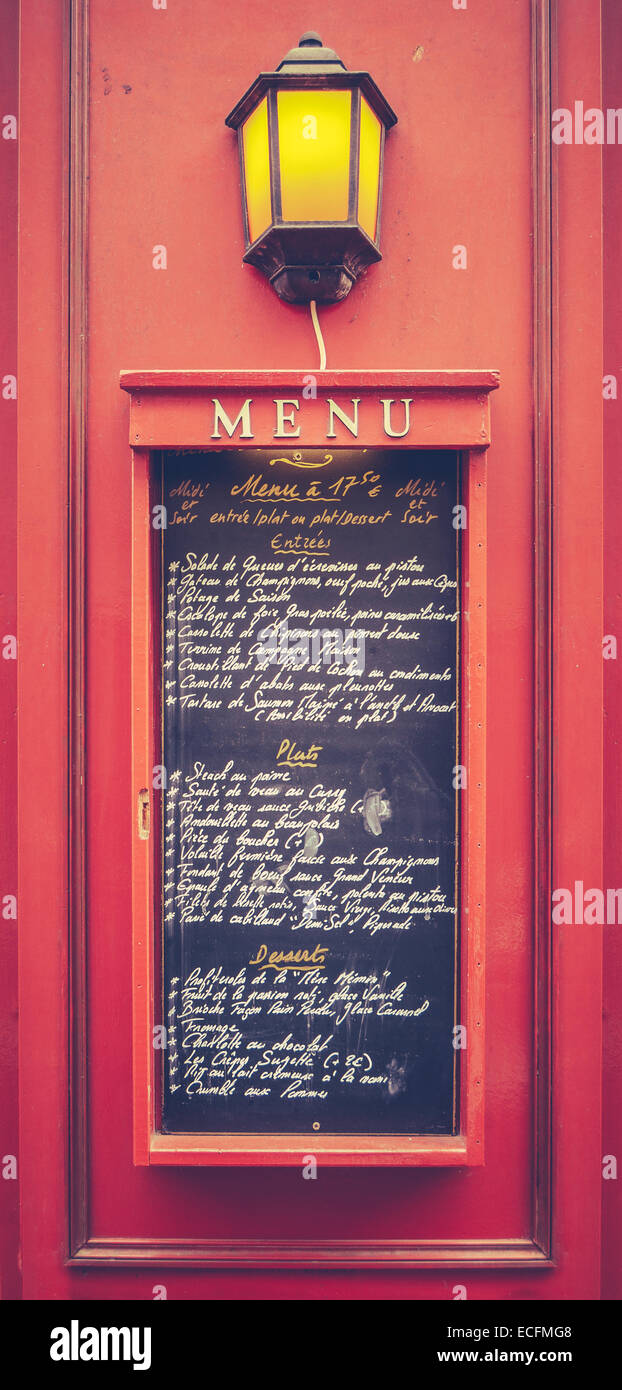 MENU
Menu à 17 50 €
Midi et Soir
Midi et Soir
entrée/plat ou plat/Dessert
Entrées
* Salade de Queues d'écrevisses au pistou
* Gateau de Champignons, oeuf poché, jus aux Cèpes
* Potage de Saison
* Escalope de foie Gras poêlée, poires caramélisées
* Cassolette de Chipirons au piment doux
* Terrine de Campagne Maison
* Croustillant de Pied de Cochon au condiments
* Cassolette d'abats aux pleurottes
* Tartare de Saumon Mariné à l'aneth et Avocat
(Possibilité en plat)
Plats
* Steack au poivre
* Sauté de veau au Curry
* Tête de veau sauce Gribiche (+
* Andouillette au beaujolais
* Pièce du boucher (+
* Volaille fermière farcie aux Champignons
* Fondant de boeuf sauce Grand Veneur
* Epaule d'agneau confite, polenta au pistou
* Filets de rosette rotis, Sauce Vierge, Risotto aux Olives
* Pavé de cabillaud "Demi-Sel", Piperade
Desserts
* Profiteroles de la "Mère Mémen"
* Fruit de la passion roti, glace Vanille
* Brioche Façon Pain Perdu, Glace Caramel
* Fromage
* Charlotte au chocolat
* Les Crêpes Suzette (+2€)
* Riz au lait crémeux à la
* Crumble aux Pommes
alamy stock photo
a alamy
ECFMG8
www.alamy.com